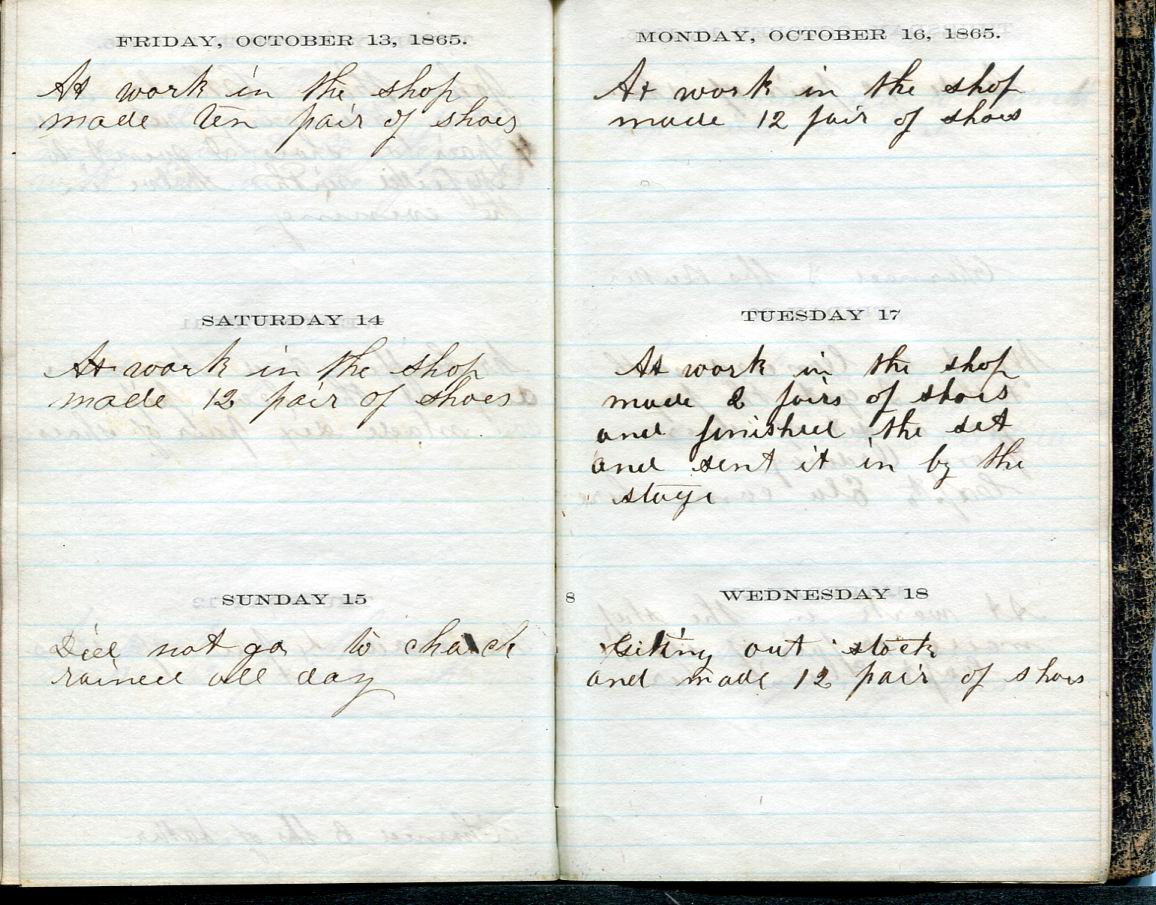 FRIDAY, OCTOBER 13, 1865.
At work in the shop
made ten pair of shoes
SATURDAY 14
At work in the shop
made 12 pair of shoes
SUNDAY 15
Did not go to church
rained all day
MONDAY, OCTOBER 16, 1865.
At work in the shop
made 12 pair of shoes
TUESDAY 17
At work in the shop
made 2 pairs of shoes
and finished the set
and sent it in by the
stage
8
WEDNESDAY 18
Getting out stock
and made 12 pair of shoes